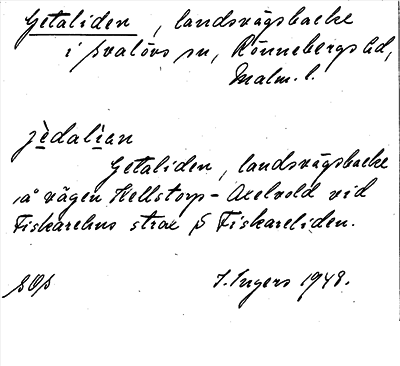 Getaliden, landsvägsbacke
i Svalövs sn, Rönnebergs hd,
Malm. l.
jèdalìan
Getaliden, landsvägsbacke
å vägen Hellstorp - Axelvold vid
Fiskarehus strax S Fiskareliden.
I. Ingers 1948.